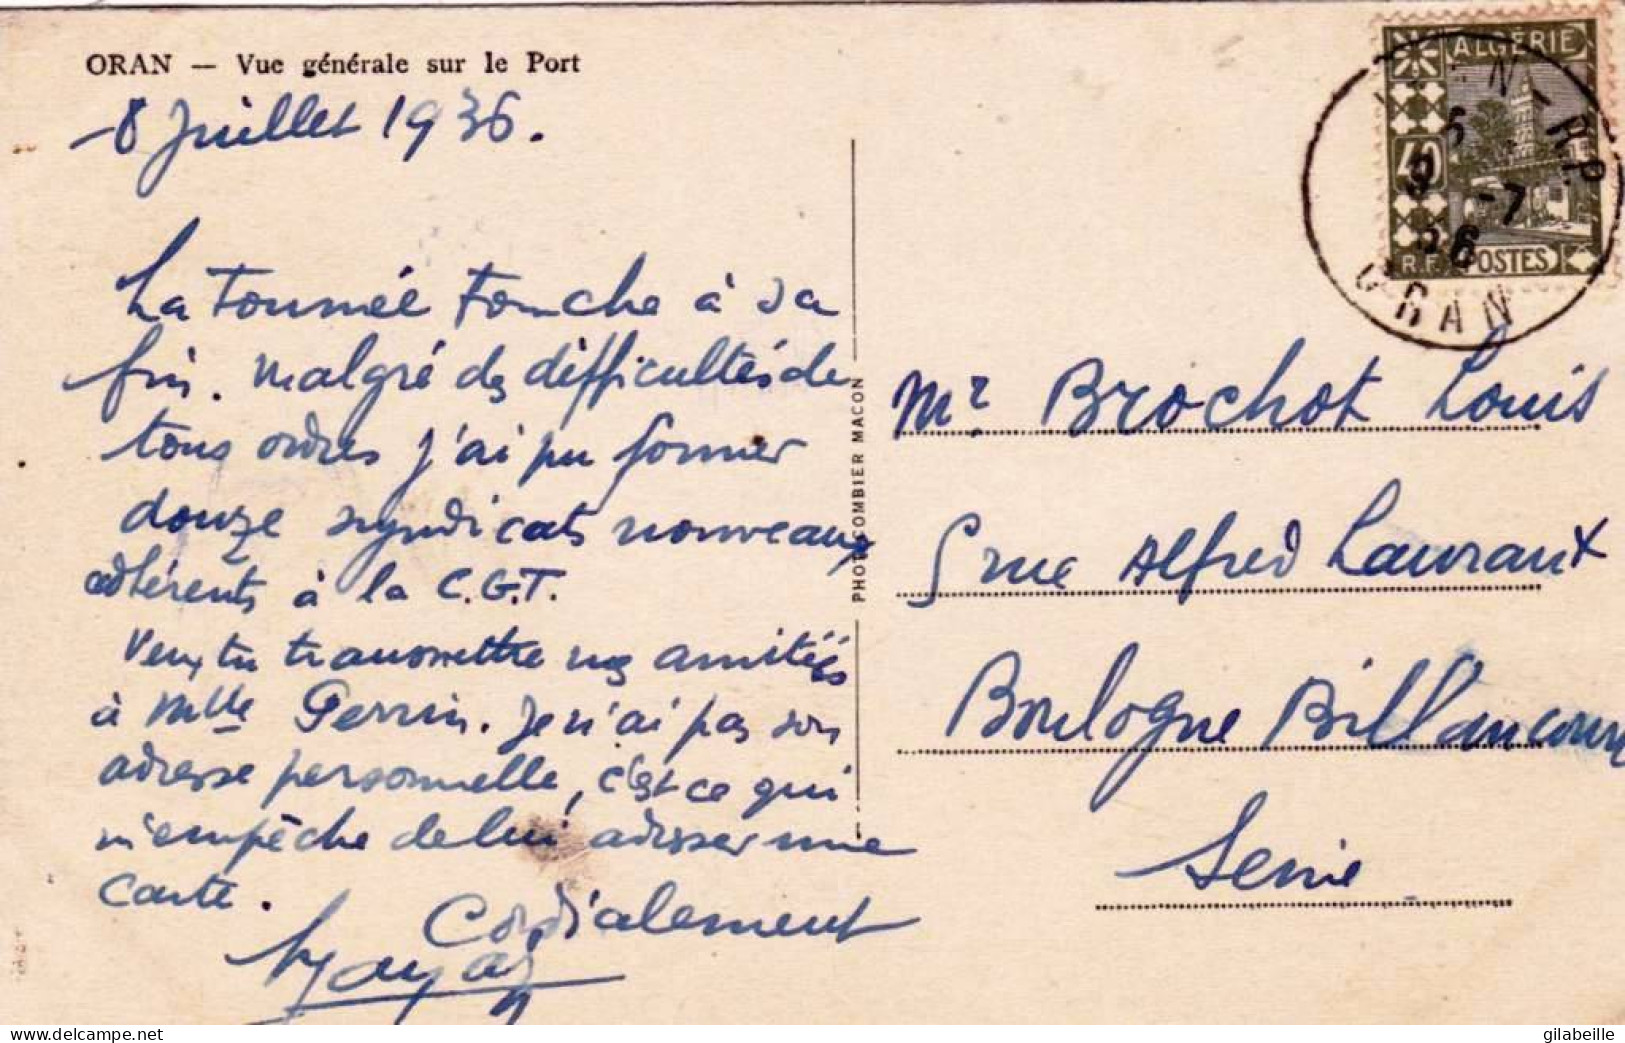 ORAN — Vue générale sur le Port
8 Juillet 1936.
La Tournée touche à sa
fin. Malgré des difficultés de
tous ordres j'ai pu former
douze syndicats nouveaux
adhérents à la C.G.T.
Veux tu transmettre mes amitiés
à Mlle Perrin. Je n'ai pas son
adresse personnelle, c'est ce qui
m'empêche de lui adresser une
carte.
Cordialement
PHOT. COMBIER MACON
ALGÉRIE
40
R.F. POSTES
R.P.
9 -7
36
ORAN
Mr Brochot Louis
5 rue Alfred Laurant
Boulogne Billancourt
Seine
delcampe.net
gilabeille